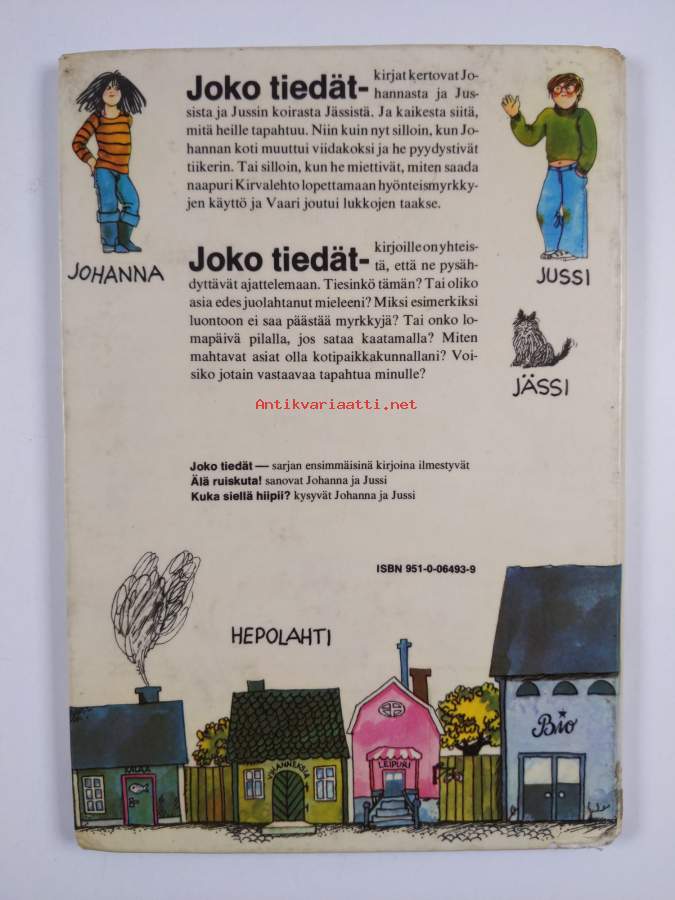 Joko tiedät- kirjat kertovat Jo-
hannasta ja Jus-
sista ja Jussin koirasta Jässistä. Ja kaikesta siitä,
mitä heille tapahtuu. Niin kuin nyt silloin, kun Jo-
hannan koti muuttui viidakoksi ja he pyydystivät
tiikerin. Tai silloin, kun he miettivät, miten saada
naapuri Kirvalehto lopettamaan hyönteismyrkky-
jen käyttö ja Vaari joutui lukkojen taakse.
JOHANNA
JUSSI
Joko tiedät- kirjoille on yhteis-
tä, että ne pysäh-
dyttävät ajattelemaan. Tiesinkö tämän? Tai oliko
asia edes juolahtanut mieleeni? Miksi esimerkiksi
luontoon ei saa päästää myrkkyjä? Tai onko lo-
mapäivä pilalla, jos sataa kaatamalla? Miten
mahtavat asiat olla kotipaikkakunnallani? Voi-
siko jotain vastaavaa tapahtua minulle?
JÄSSI
Antikvariaatti.net
Joko tiedät — sarjan ensimmäisinä kirjoina ilmestyvät
Älä ruiskuta! sanovat Johanna ja Jussi
Kuka siellä hiipii? kysyvät Johanna ja Jussi
ISBN 951-0-06493-9
HEPOLAHTI
Bio
LEIPURI
KALAA